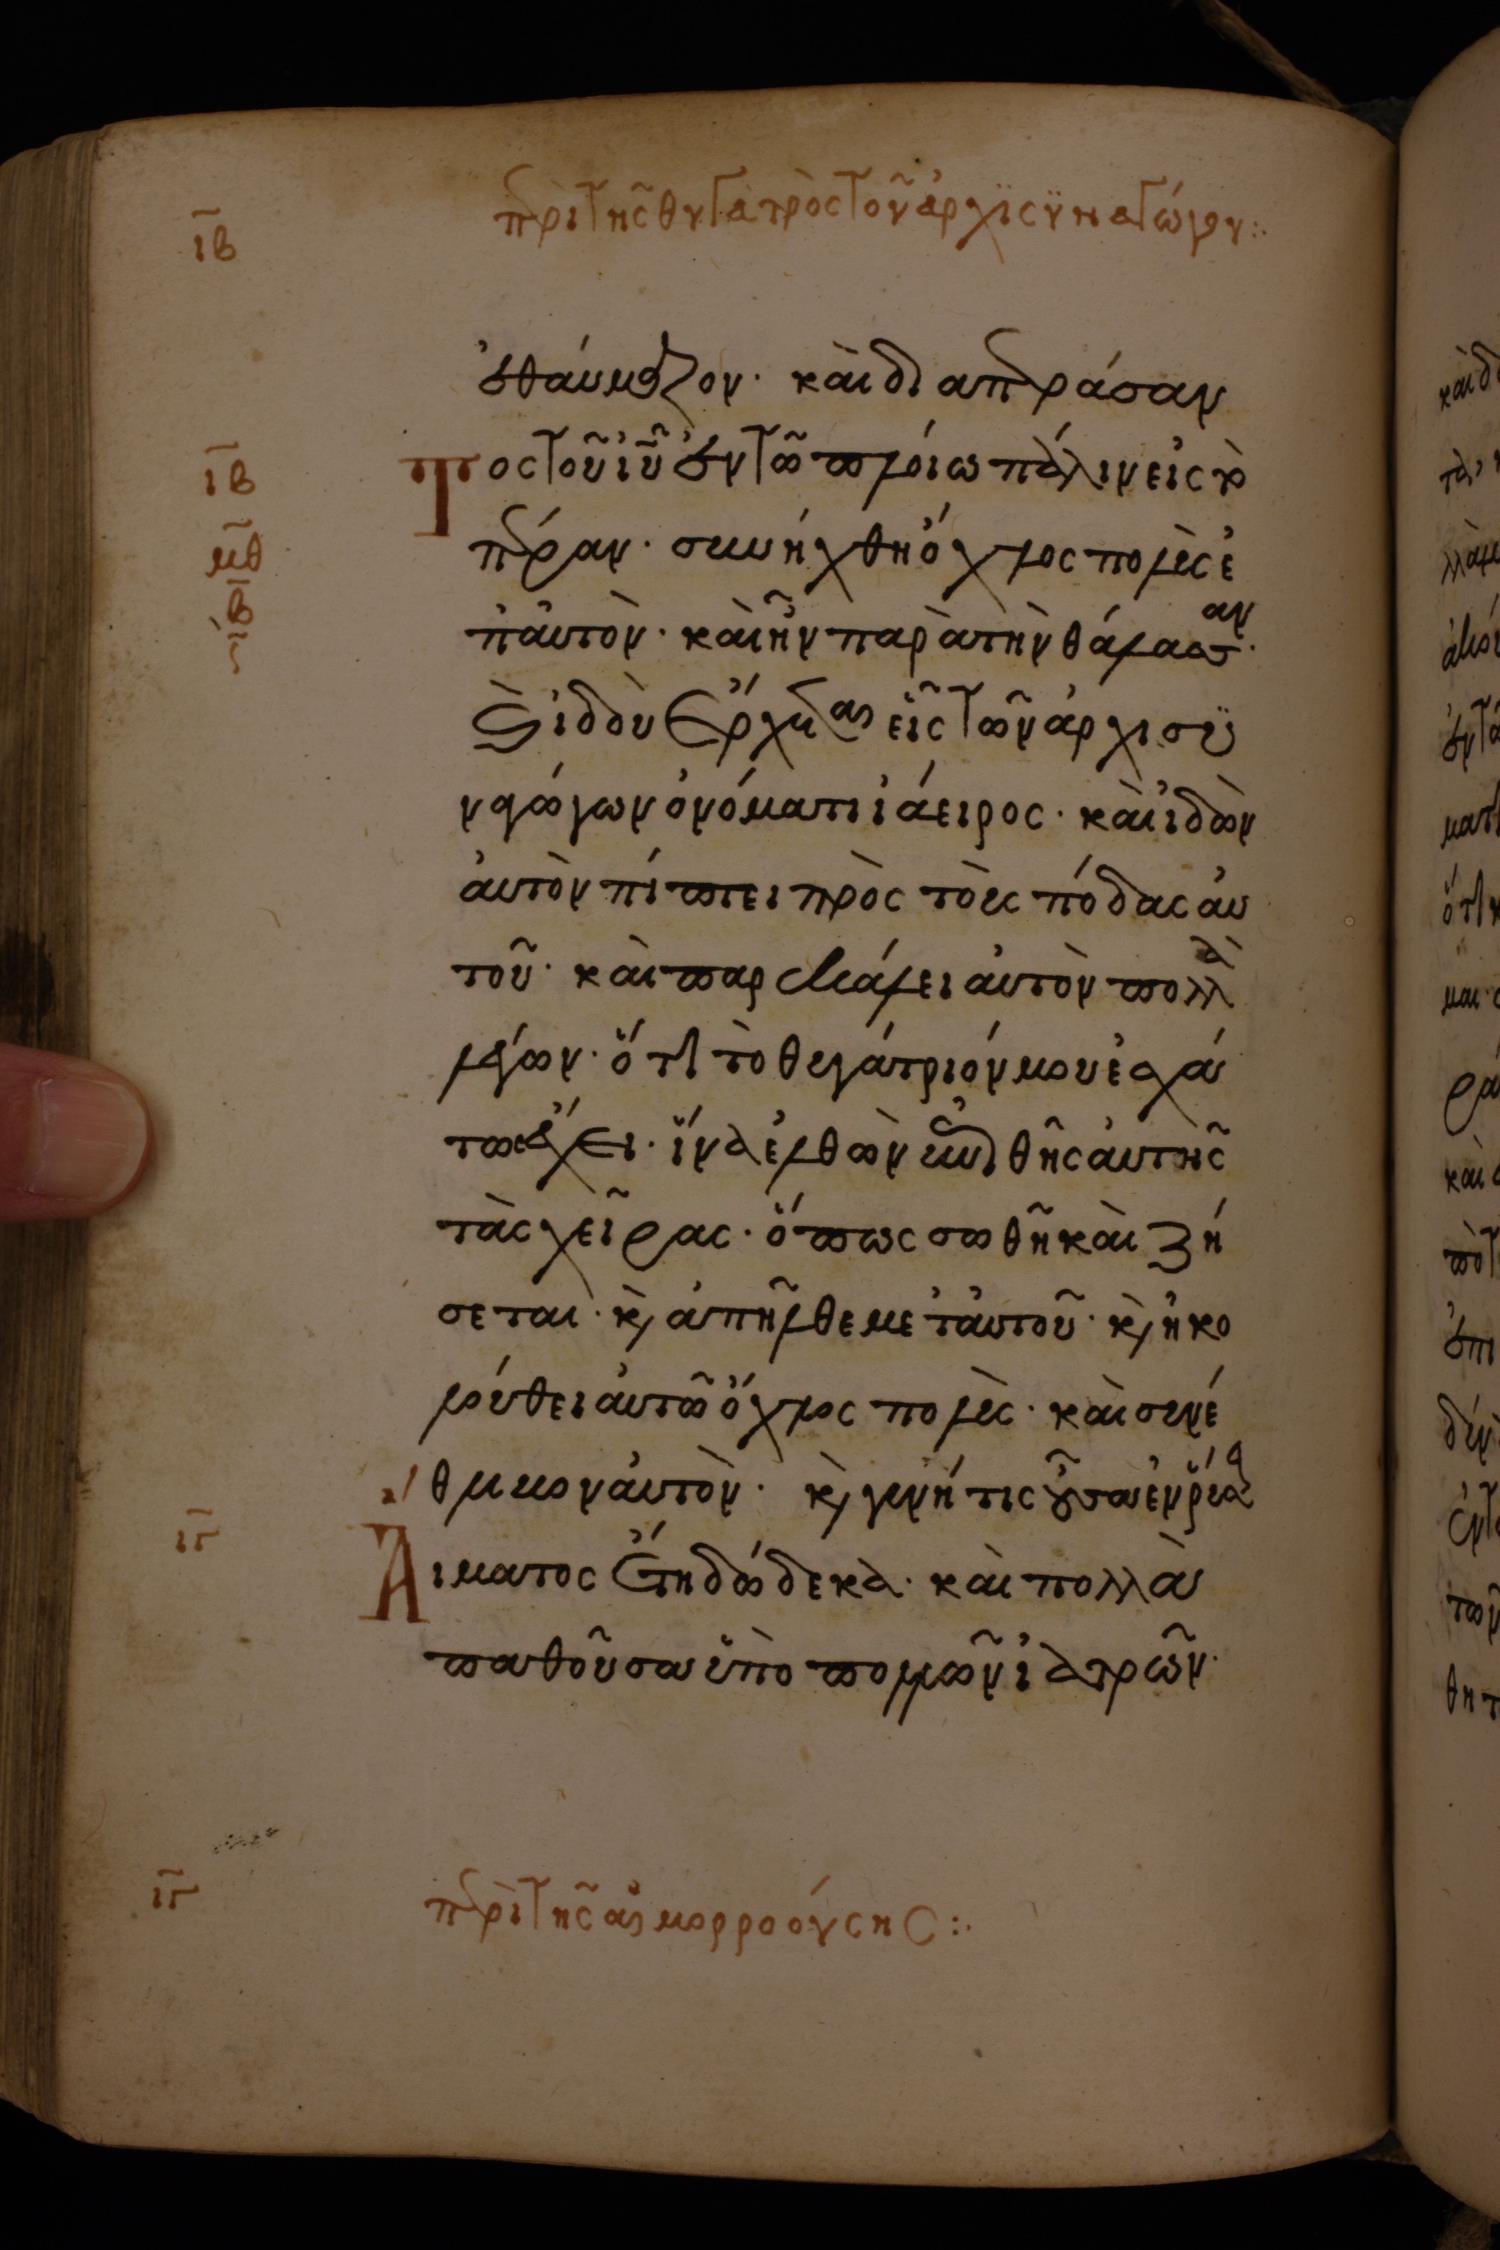 ιβ
πρὶ τῆς θυγατρὸς τοῦ ἀρχϊσϋναγώγου :·
ἐθάυμαζον· κὰι διαπεράσαν
ιβ
τος τοῦ ἰῦ ἐν τῶ πλόιω πάλιν εἰς τὸ
μθ
πέραν· συνήχθη ὄχλος πολὺς ἐ
β
π ἀυτὸν· κὰι ἦν παρὰ τὴν θάλασσαν·
ς
κὰι ἰδοὺ ἔρχεται εἷς τῶν ἀρχισϋ
ναγώγων ὀνόματι ϊάειρος· κὰι ἰδὼν
ἀυτὸν πίπτει πρὸς τοὺς πόδας ἀυ
τοῦ· κὰι παρεκάλει ἀυτὸν πολλὰ
λέγων· ὅτι τὸ θυγάτριόν μου ἐσχά
τως ἔχει· ἵνα ἐλθὼν ἐπιθῆς ἀυτῆς
τὰς χεῖρας· ὅπως σωθῆ κὰι ζή
σεται· κ ἀπῆλθε μετ ἀυτοῦ· κ ἠκο
λόυθει ἀυτῶ ὄχλος πολὺς· κὰι συνέ
θλιβον ἀυτὸν· κ γυνή τις οὖσα ἐν ῥύσει
ιγ
Αἵματος ἔτη δώδεκα· κὰι πολλὰ
παθοῦσα ὑπὸ πολλῶν ἰατρῶν·
ιγ
πρὶ τῆς αἱμορροόυσης :·